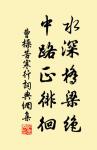 水深桥梁绝
中路正徘徊
曹操苦寒行詞典網集